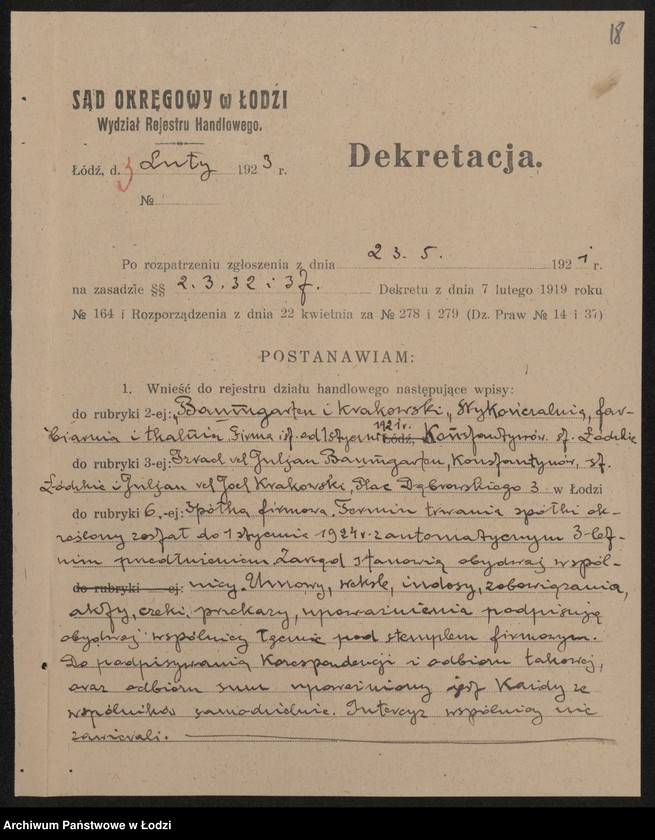 18
SĄD OKRĘGOWY w ŁODZI
Wydział Rejestru Handlowego.
Łódź, d. 3 Luty 1923 r.
Dekretacja.
№
Po rozpatrzeniu zgłoszenia z dnia 23. 5. 1921 r.
na zasadzie §§ 2. 3. 32 i 37. Dekretu z dnia 7 lutego 1919 roku
№ 164 i Rozporządzenia z dnia 22 kwietnia za № 278 i 279 (Dz. Praw № 14 i 37)
POSTANAWIAM:
1. Wnieść do rejestru działu handlowego następujące wpisy:
do rubryki 2-ej: „Baumgarten i Krakowski„ Wykończalnia, far-
biarnia i tkalnia. Firma ist. od 1 stycznia 1921 r. Łódź, Konstantynów. st. Łódzkie
do rubryki 3-ej: Izrael vel Juljan Baumgarten, Konstantynów, st.
Łódzkie i Juljan vel Joel Krakowski, Plac Dąbrowskiego 3 w Łodzi
do rubryki 6.-ej: Spółka firmowa. Termin trwania spółki ok-
reślony został do 1 stycznia 1924 r. z automatycznym 3-let-
nim przedłużeniem. Zarząd stanowią obydwaj wspól-
do rubryki ej: nicy. Umowy, weksle, indosy, zobowiązania,
akty, czeki, przekazy, upoważnienia podpisują
obydwaj wspólnicy łącznie pod stemplem firmowym.
Do podpisywania korespondencji i odbioru takowej,
oraz odbioru sum upoważniony jest każdy ze
wspólników samodzielnie. Intercyz wspólnicy nie
zawierali.
Archiwum Państwowe w Łodzi